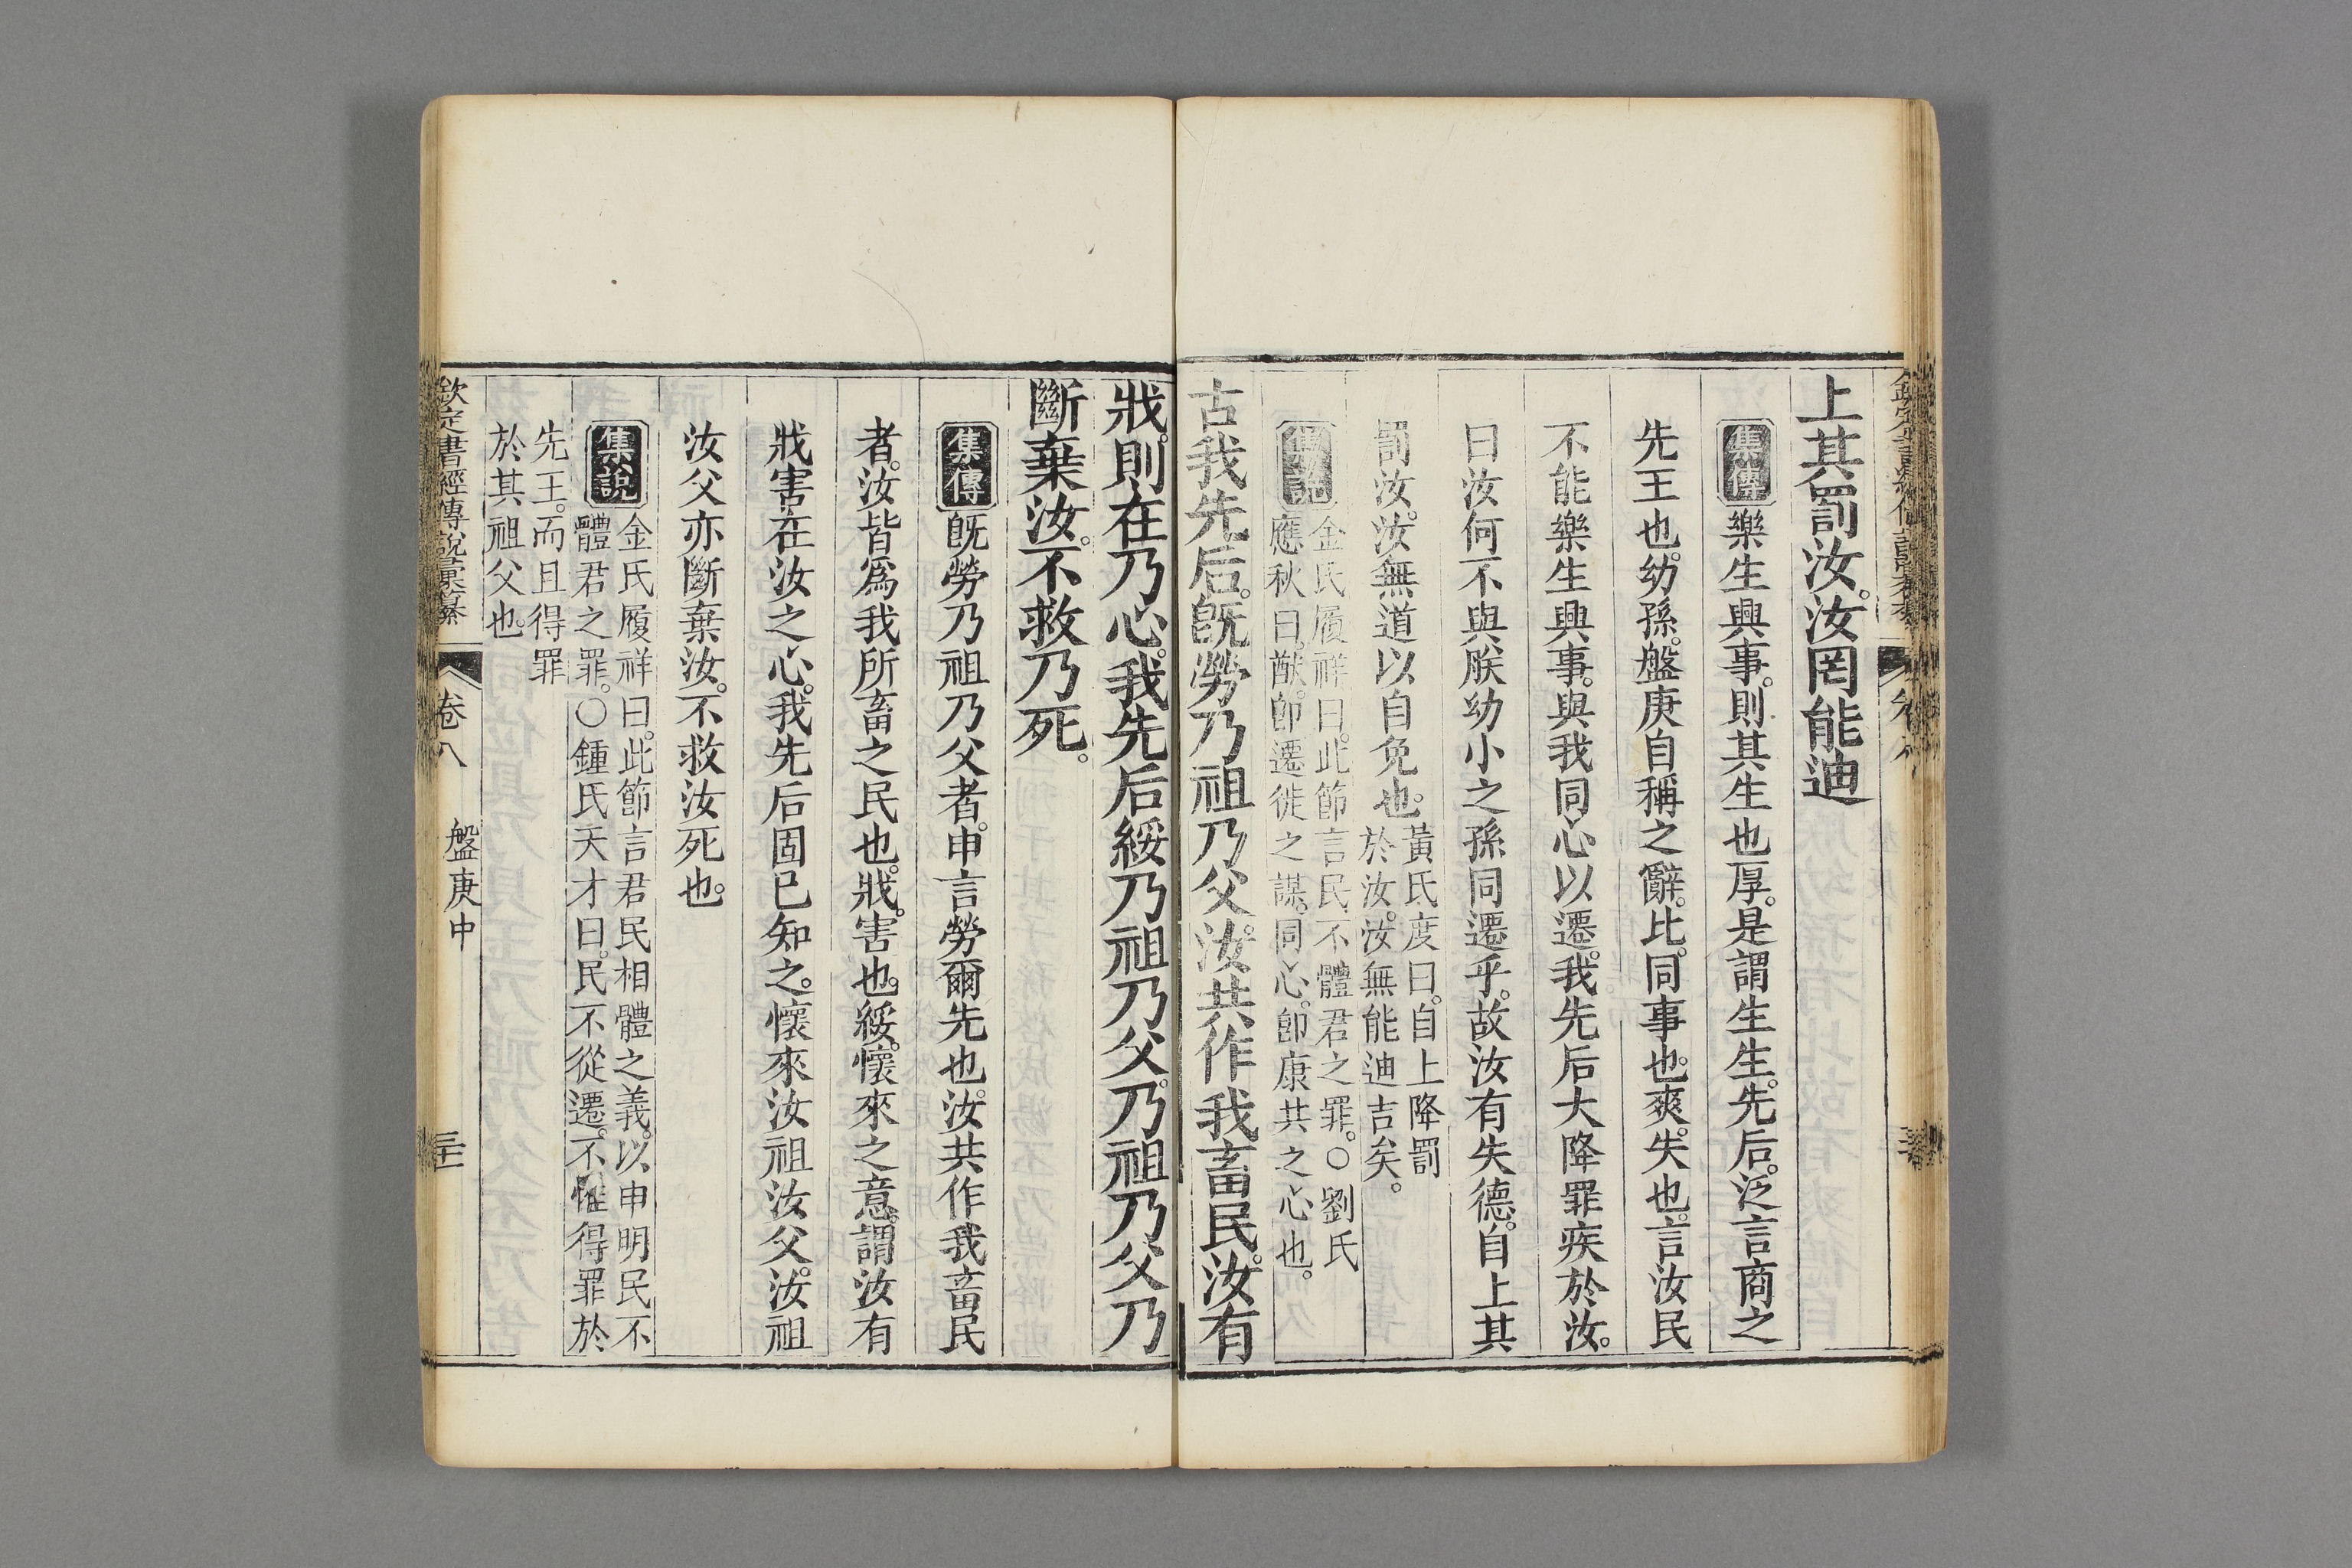 上其罰汝。汝罔能迪
集傳 樂生興事。則其生也厚。是謂生生。先后。泛言商之
先王也。幼孫。盤庚自稱之辭。比。同事也。爽。失也。言汝民
不能樂生興事。與我同心以遷。我先后大降罪疾於汝。
曰汝何不與朕幼小之孫同遷乎。故汝有失德。自上其
罰汝。汝無道以自免也。黃氏度曰。自上降罰
於汝。汝無能迪吉矣。
集說 金氏履祥曰。此節言民不體君之罪。○劉氏
應秋曰。猷。卽遷徙之謀。同心。卽康共之心也。
古我先后。旣勞乃祖乃父。汝共作我畜民。汝有
戕。則在乃心。我先后綏乃祖乃父。乃祖乃父乃
斷棄汝。不救乃死。
集傳 旣勞乃祖乃父者。申言勞爾先也。汝共作我畜民
者。汝皆爲我所畜之民也。戕。害也。綏。懷來之意。謂汝有
戕害在汝之心。我先后固已知之。懷來汝祖汝父。汝祖
汝父亦斷棄汝。不救汝死也。
集說 金氏履祥曰。此節言君民相體之義。以申明民不
體君之罪。○鍾氏天才曰。民不從遷。不惟得罪於
先王。而且得罪
於其祖父也。
欽定書經傳說彙纂 卷八 盤庚中